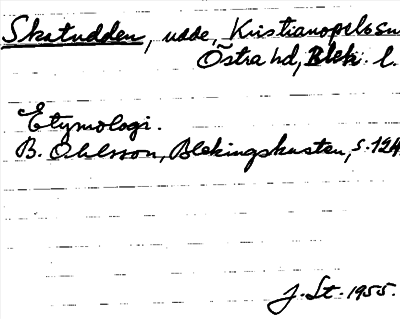 Skatudden, udde, Kristianopels sn
Östra hd, Blek. l.
Etymologi.
B. Ohlsson, Blekingskusten, s. 124
J. St. 1955.